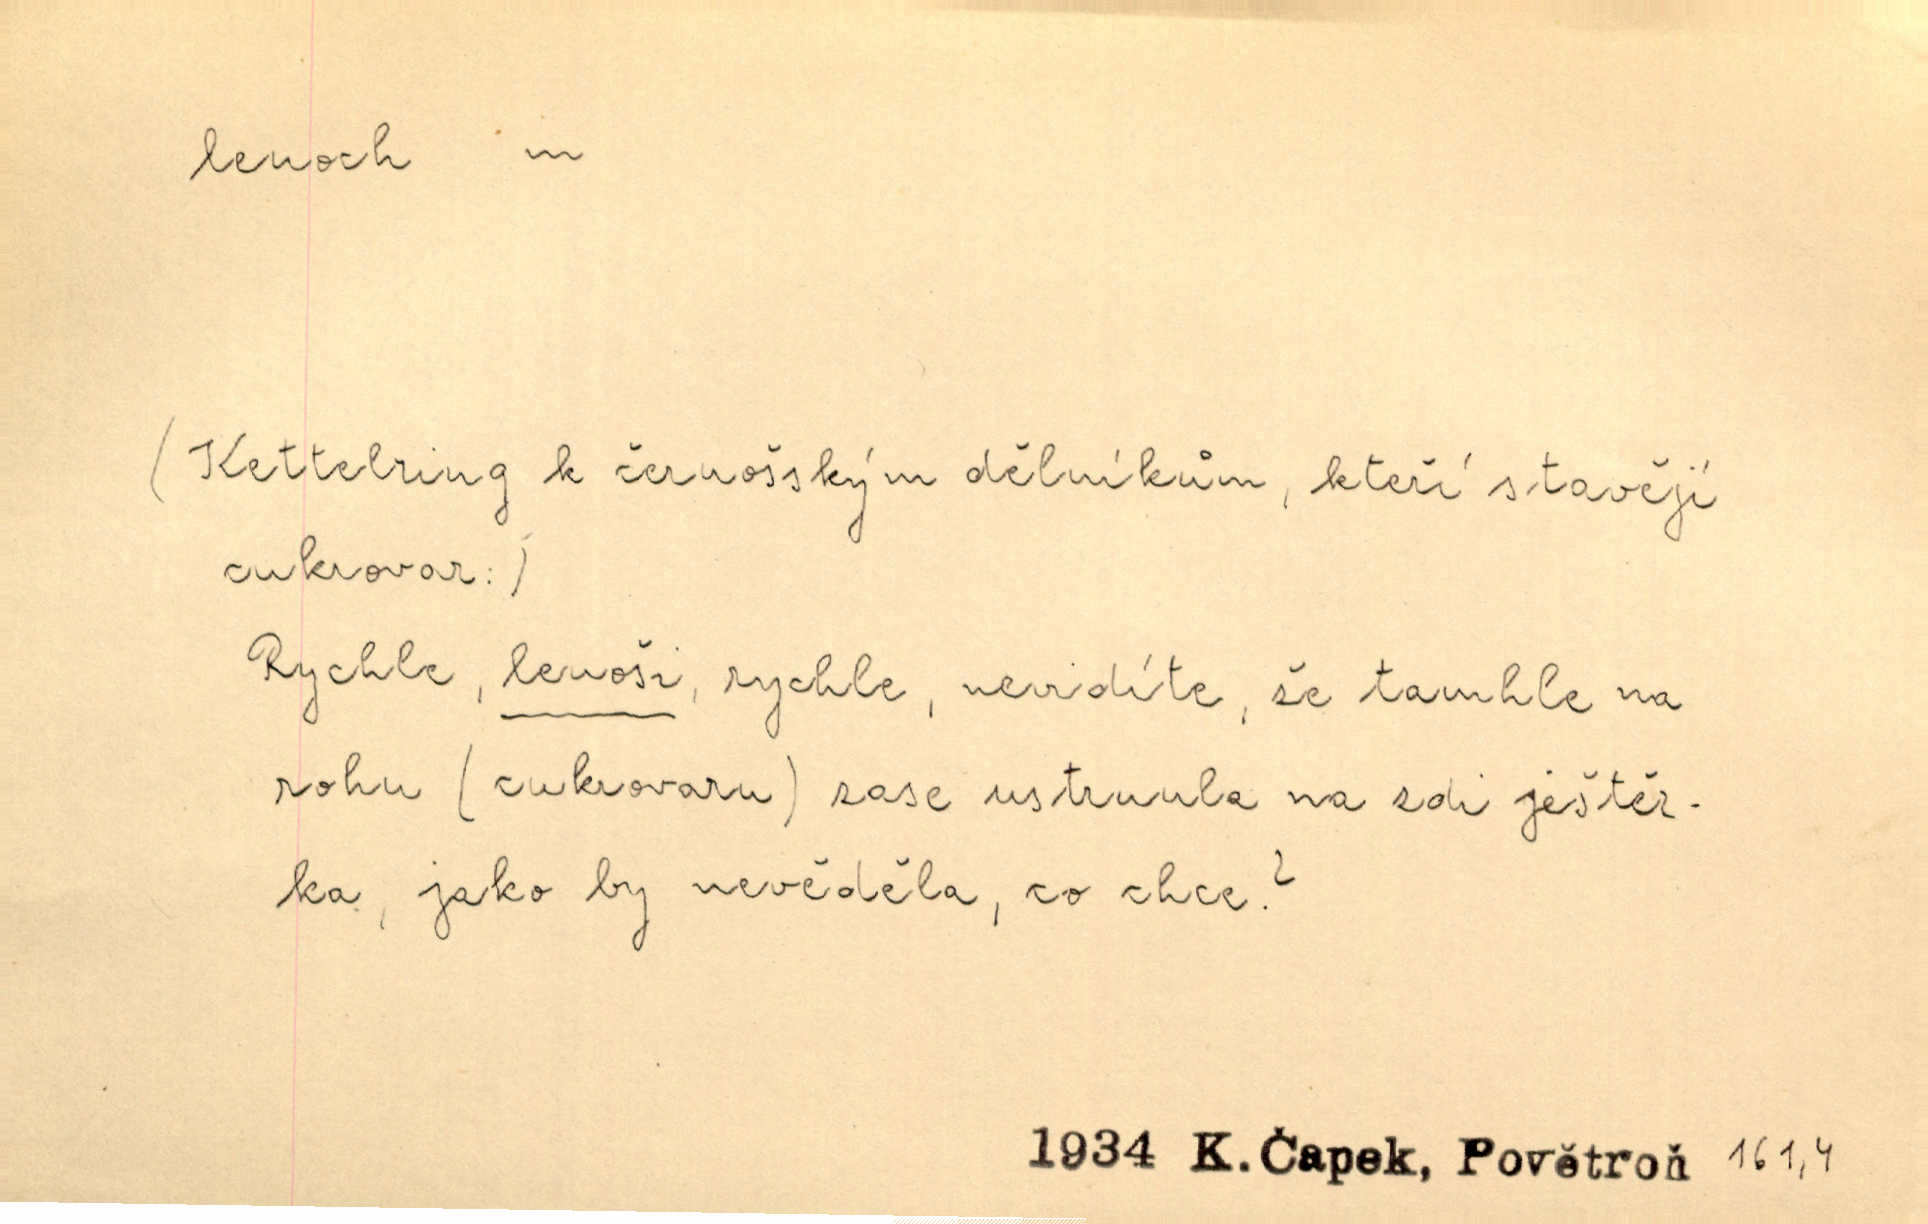 lenoch m
(Kettelring k černošským dělníkům, kteří stavějí
cukrovar:)
Rychle, lenoši, rychle, nevidíte, že tamhle na
rohu (cukrovaru) zase ustrnula na zdi ještěr-
ka, jako by nevěděla, co chce?
1934 K. Čapek, Povětroň 161,4